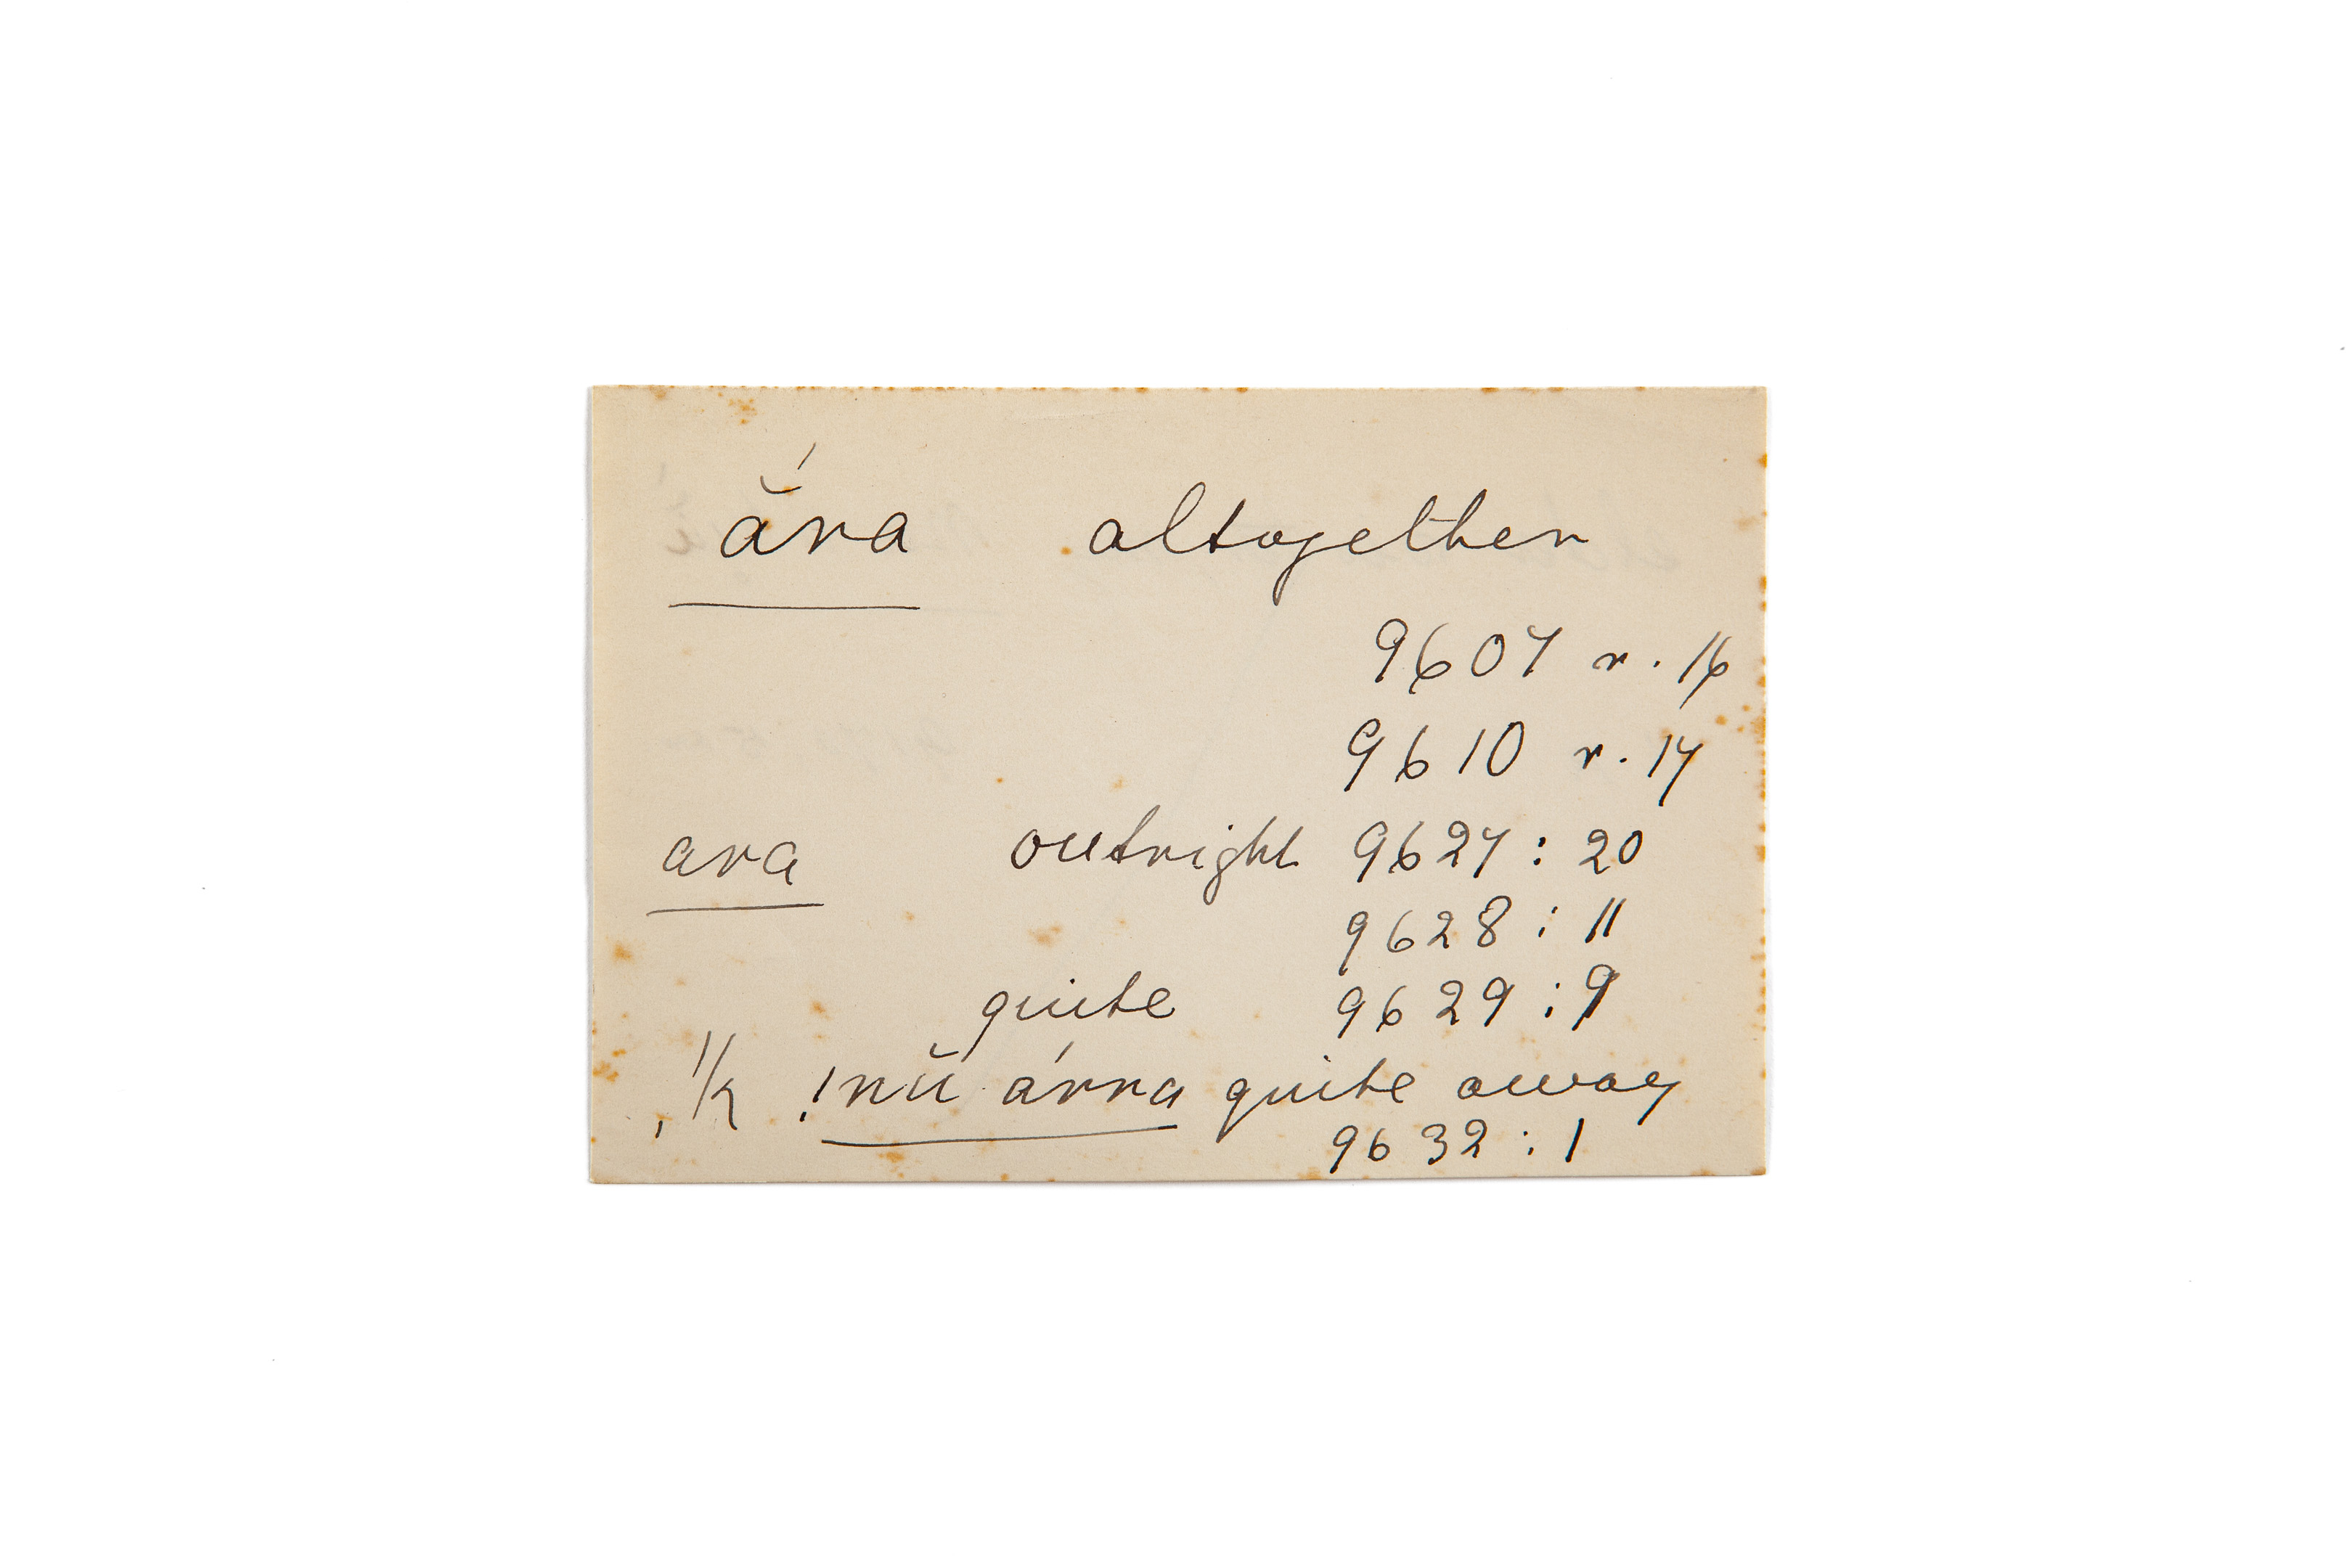 ắra altogether
9607 r. 16
9610 r. 17
ara outright 9627 : 20
9628 : 11
quite 9629 : 9
!nŭ árra quite away
9632 : 1